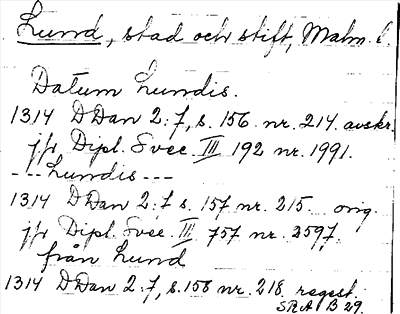 Lund, stad och stift, Malm. l.
Datum Lundis.
1314 DDan 2:7, s. 156 nr. 214 avskr.
jfr Dipl. Svec. III 192 nr. 1991.
---Lundis---
1314 DDan 2:7 s. 157 nr. 215 orig.
jfr Dipl. Svec. III 757 nr. 2597,
från Lund
1314 DDan 2:7, s. 158 nr. 218, regest.
SRA B 29.